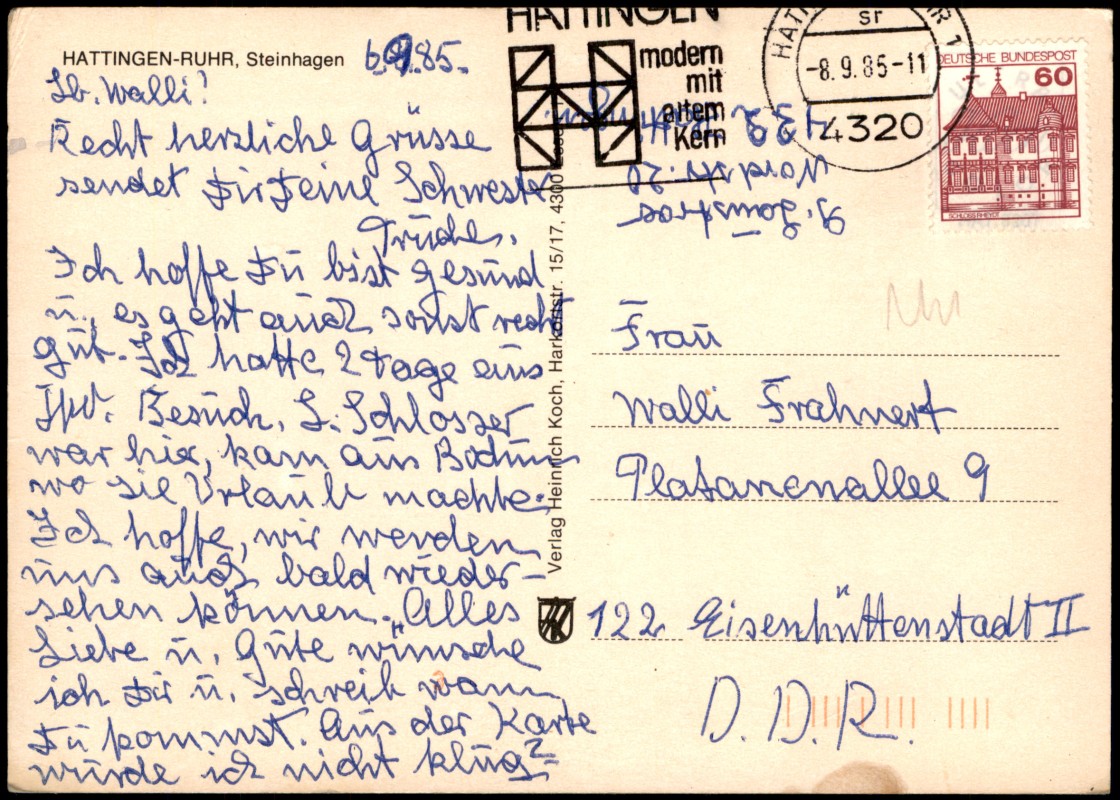 HATTINGEN-RUHR, Steinhagen
6.9.85.
Lb. Walli!
Recht herzliche Grüsse
sendet Dir Deine Schwester
Trudel.
Ich hoffe Du bist gesund
u. es geht auch sonst recht
gut. Ich hatte 2 Tage aus
Besuch. L. Schlosser
war hier, kam aus Bochum
wo sie Urlaub machte.
Ich hoffe, wir werden
uns auch bald wieder-
sehen können. Alles
Liebe u. Gute wünsche
ich Dir u. schreib wann
Du kommst. Aus der Karte
wurde ich nicht klug?
Verlag Heinrich Koch, Harkortstr. 15/17, 4300
HATTINGEN
modern
mit
altem
Kern
HATTINGEN, RUHR 1
sr
-8.9.85-11
4320
DEUTSCHE BUNDESPOST
60
SCHLOSS RHEYDT
432 Hattingen
Nordstr. 20
Frau
Walli Frahnert
Platanenallee 9
122 Eisenhüttenstadt II
D.D.R.